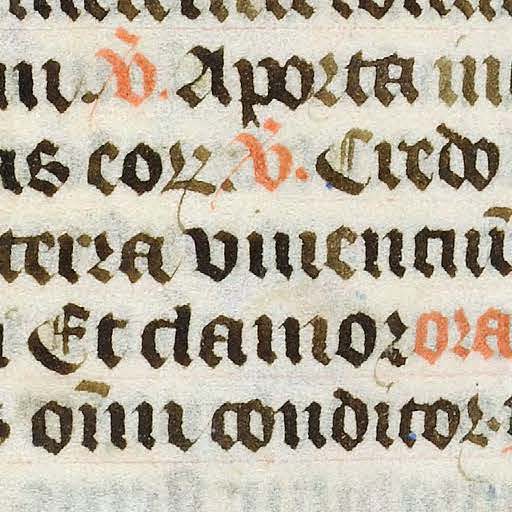 V̄. A porta in
as eoꝝ. V̄. Credo
terra viuentiū
Et clamor ora
om̄i conditor